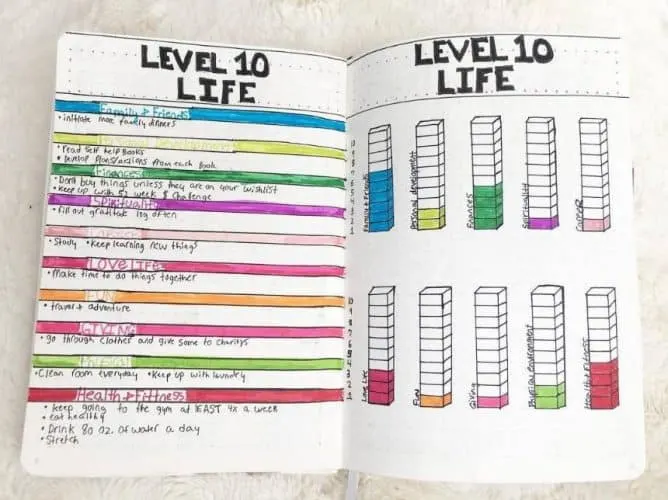 LEVEL 10
LIFE
Family + Friends
• initiate more family dinners
Development
• read self help books
• Develop plans/actions from each book
Finances
• Don't buy things unless they are on your wishlist
• Keep up with 52 week $ challenge
Spirituality
• Fill out gratitude log often
Career
• Study • Keep learning new things
LOVE LIFE
• Make time to do things together
FUN
• travel + adventure
GIVING
• go through clothes and give some to charitys
• Clean room everyday • Keep up with laundry
Health + Fittness
• keep going to the gym at lEAST 4x a week
• eat healthy
• Drink 80 oz. of water a day
• Stretch
LEVEL 10
LIFE
10
9
8
7
6
5
4
3
2
1
Family + Friends
Personal development
Finances
Spirituality
Career
10
9
8
7
6
5
4
3
2
1
Love Life
Fun
Giving
Physical environment
Health + Fitness